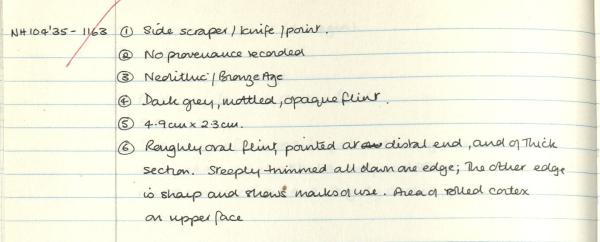 NH104'35-1163 ① Side scraper / knife / point.
② No provenance recorded
③ Neolithic / Bronze Age
④ Dark grey, mottled, opaque flint.
⑤ 4.9cm x 2.3cm.
⑥ Roughly oval flint, pointed at distal end, and of thick
section. Steeply trimmed all down one edge; the other edge
is sharp and shows marks of use. Area of rolled cortex
on upper face